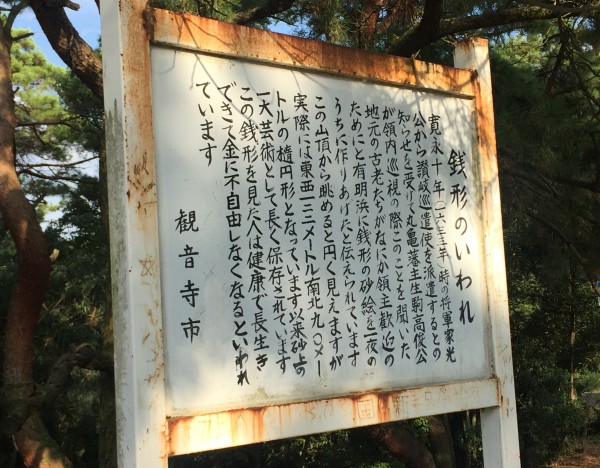 銭形のいわれ
寛永十年(一六三三年)時の将軍家光
公から讃岐へ巡遣使を派遣するとの
知らせを受けて丸亀藩主生駒高俊公
が領内巡視の際このことを聞いた
地元の古老たちがなにか領主歓迎の
ためにと有明浜に銭形の砂絵を一夜の
うちに作りあげたと伝えられています
この山頂から眺めると円く見えますが
実際には東西一二二メートル南北九〇メー
トルの楕円形となっています以来砂上の
一大芸術として長く保存されています
この銭形を見た人は健康で長生き
できて金に不自由しなくなるといわれ
ています
観音寺市